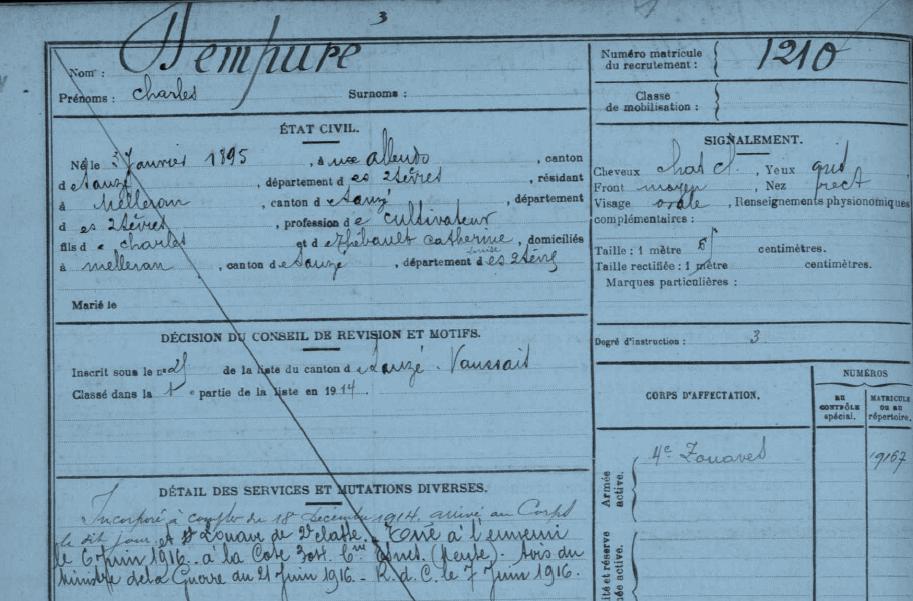 3
Nom : Dempuré
Prénoms : Charles Surnoms :
Numéro matricule
du recrutement : 1210
Classe
de mobilisation :
ÉTAT CIVIL.
Né le 3 Janvier 1895, à , canton
de Sauzé, département des 2 Sèvres, résidant
à Melleran, canton de Sauzé, département
des 2 Sèvres, profession de cultivateur
fils de Charles et de Thébault Catherine Louise, domiciliés
à Melleran, canton de Sauzé, département des 2 Sèvres
Marié le
SIGNALEMENT.
Cheveux chat cl., Yeux gris
Front moyen, Nez rect
Visage ovale, Renseignements physionomiques
complémentaires :
Taille : 1 mètre centimètres.
Taille rectifiée : 1 mètre centimètres.
Marques particulières :
Degré d'instruction : 3
DÉCISION DU CONSEIL DE REVISION ET MOTIFS.
Inscrit sous le n° de la liste du canton de Sauzé-Vaussais
Classé dans la 1e partie de la liste en 1914.
CORPS D'AFFECTATION.
NUMÉROS
AU
CONTRÔLE
spécial.
MATRICULE
OU AU
répertoire.
Armée
active.
4e Zouaves 19167
DÉTAIL DES SERVICES ET MUTATIONS DIVERSES.
Incorporé à compter du 18 Décembre 1914, arrivé au Corps
le dit jour et Zouave de 2e classe. Tué à l'ennemi
le 6 Juin 1916 à la Cote 304. Esnes. (Meuse). Avis du
Ministre de la Guerre du 21 Juin 1916. R. d. C. le 7 Juin 1916.